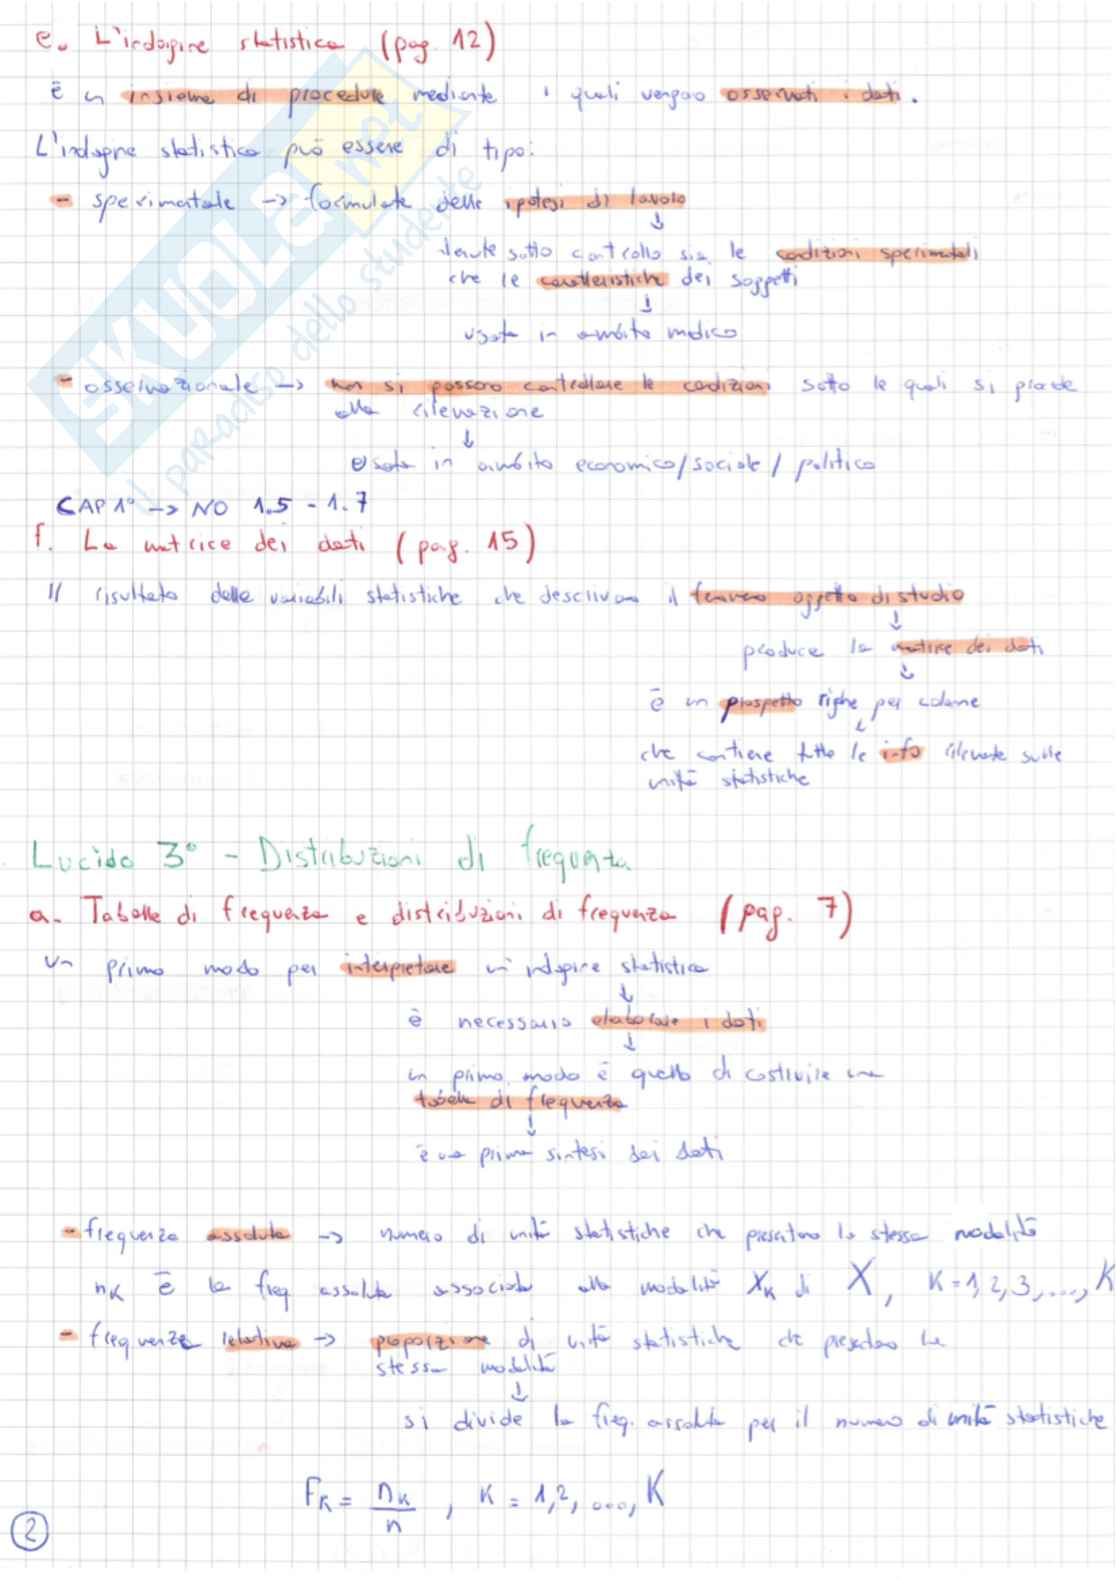 e. L'indagine statistica (pag. 12)
è un insieme di procedure mediante i quali vengono osservati i dati.
L'indagine statistica può essere di tipo:
- sperimentale -> formulate delle ipotesi di lavoro
↓
tenute sotto controllo sia le condizioni sperimentali
che le caratteristiche dei soggetti
↓
usata in ambito medico
- osservazionale -> non si possono controllare le condizioni sotto le quali si procede
alla rilevazione
↓
usata in ambito economico/sociale/politico
CAP 1° -> NO 1.5 - 1.7
f. La matrice dei dati (pag. 15)
Il risultato delle variabili statistiche che descrivono il fenomeno oggetto di studio
↓
produce la matrice dei dati
↓
è un prospetto righe per colonne
↓
che contiene tutte le info rilevate sulle
unità statistiche
Lucido 3° - Distribuzioni di frequenza
a. Tabelle di frequenza e distribuzioni di frequenza (pag. 7)
Un primo modo per interpretare un'indagine statistica
↓
è necessario elaborare i dati
↓
un primo modo è quello di costruire una
tabella di frequenza
↓
è una prima sintesi dei dati
- frequenza assoluta -> numero di unità statistiche che presentano la stessa modalità
nK è la freq assoluta associata alla modalità XK di X, K=1,2,3,...,K
- frequenza relativa -> proporzione di unità statistiche che presentano la
stessa modalità
↓
si divide la freq. assoluta per il numero di unità statistiche
FK = nK/n , K = 1,2,...,K
2
SKUOLA.net
il paradiso dello studente